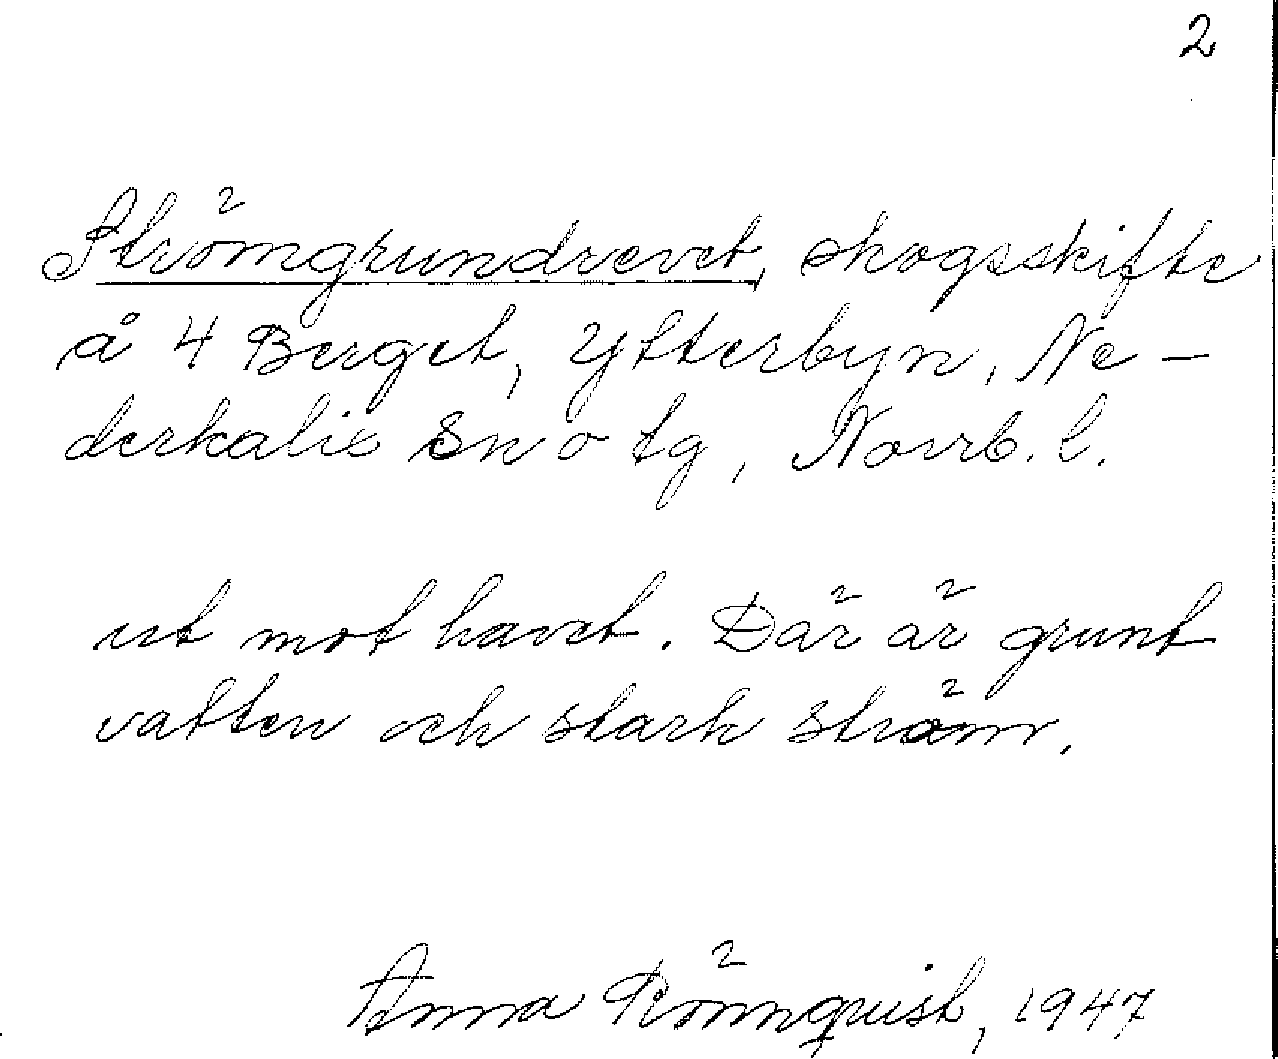 2
Strömgrundrevet, skogsskifte
å 4 Berget, Ytterbyn, Ne-
derkalix sn o tg, Norrb. l.
ut mot havet. Där är grunt
vatten och stark ström.
Anna Rönnquist, 1947